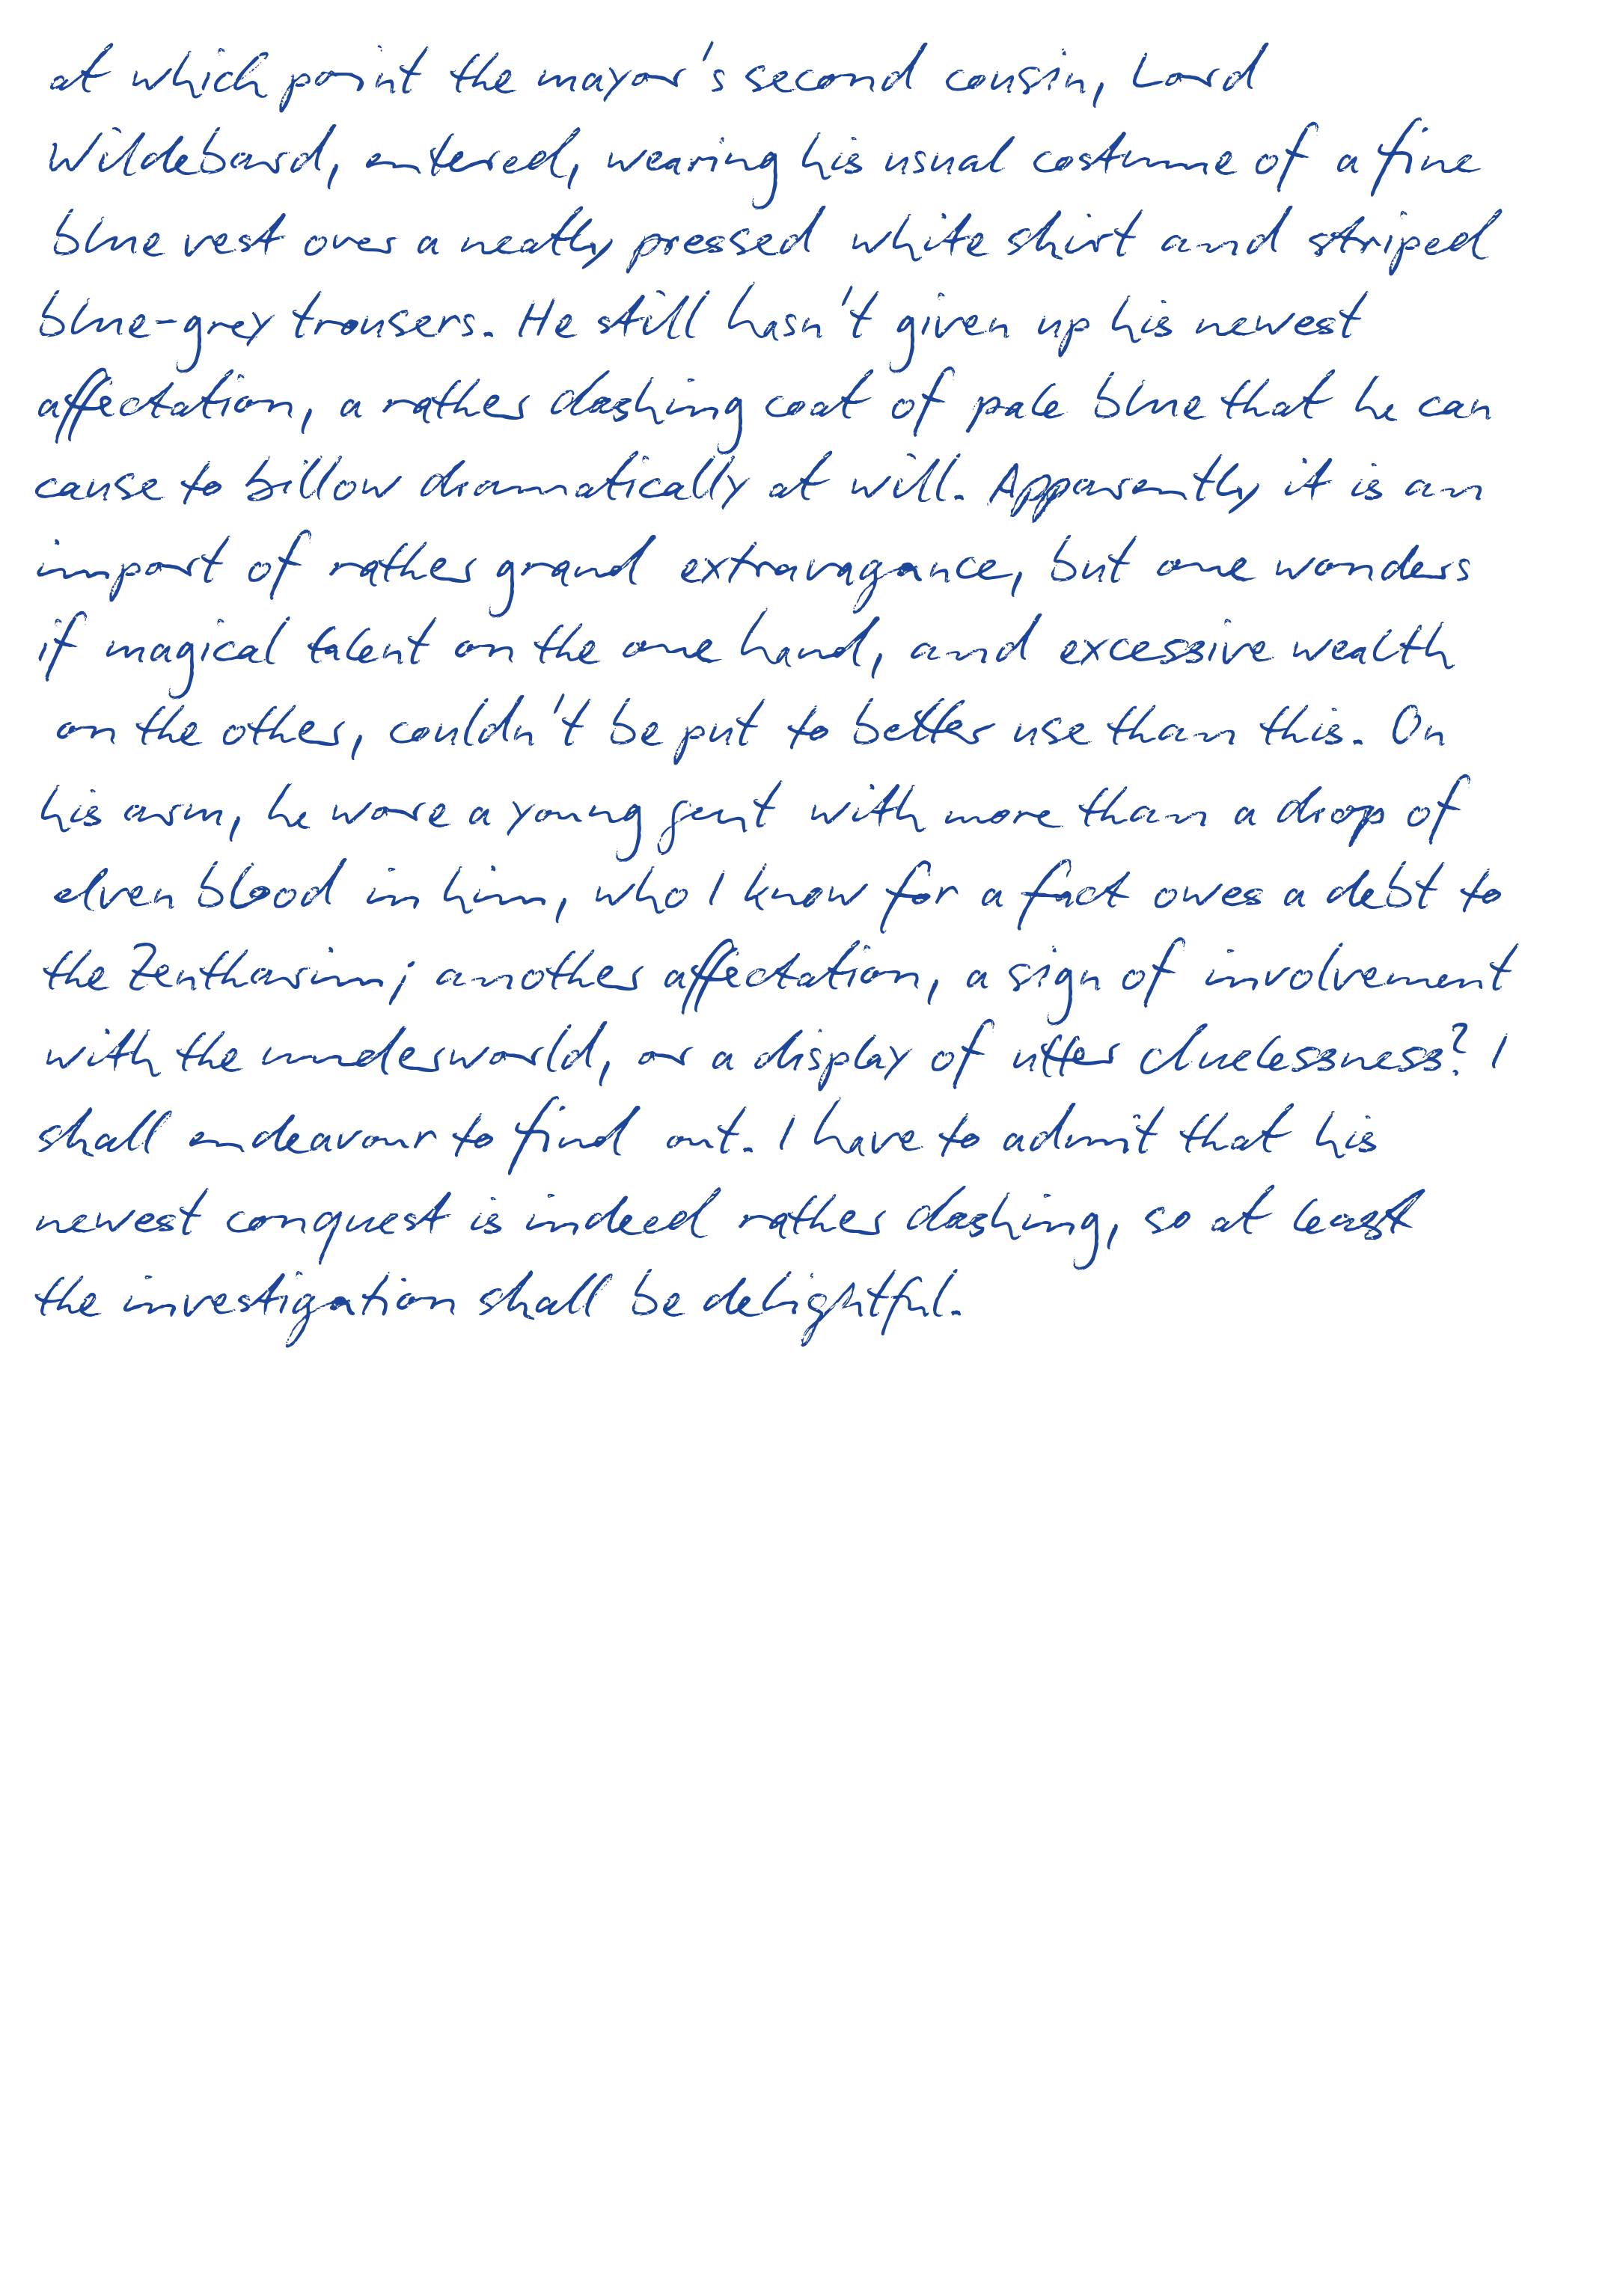 at which point the mayor's second cousin, Lord
Wildebard, entered, wearing his usual costume of a fine
blue vest over a neatly pressed white shirt and striped
blue-grey trousers. He still hasn't given up his newest
affectation, a rather dashing coat of pale blue that he can
cause to billow dramatically at will. Apparently it is an
import of rather grand extravagance, but one wonders
if magical talent on the one hand, and excessive wealth
on the other, couldn't be put to better use than this. On
his arm, he wore a young gent with more than a drop of
elven blood in him, who I know for a fact owes a debt to
the Zentharim; another affectation, a sign of involvement
with the underworld, or a display of utter cluelessness? I
shall endeavour to find out. I have to admit that his
newest conquest is indeed rather dashing, so at least
the investigation shall be delightful.